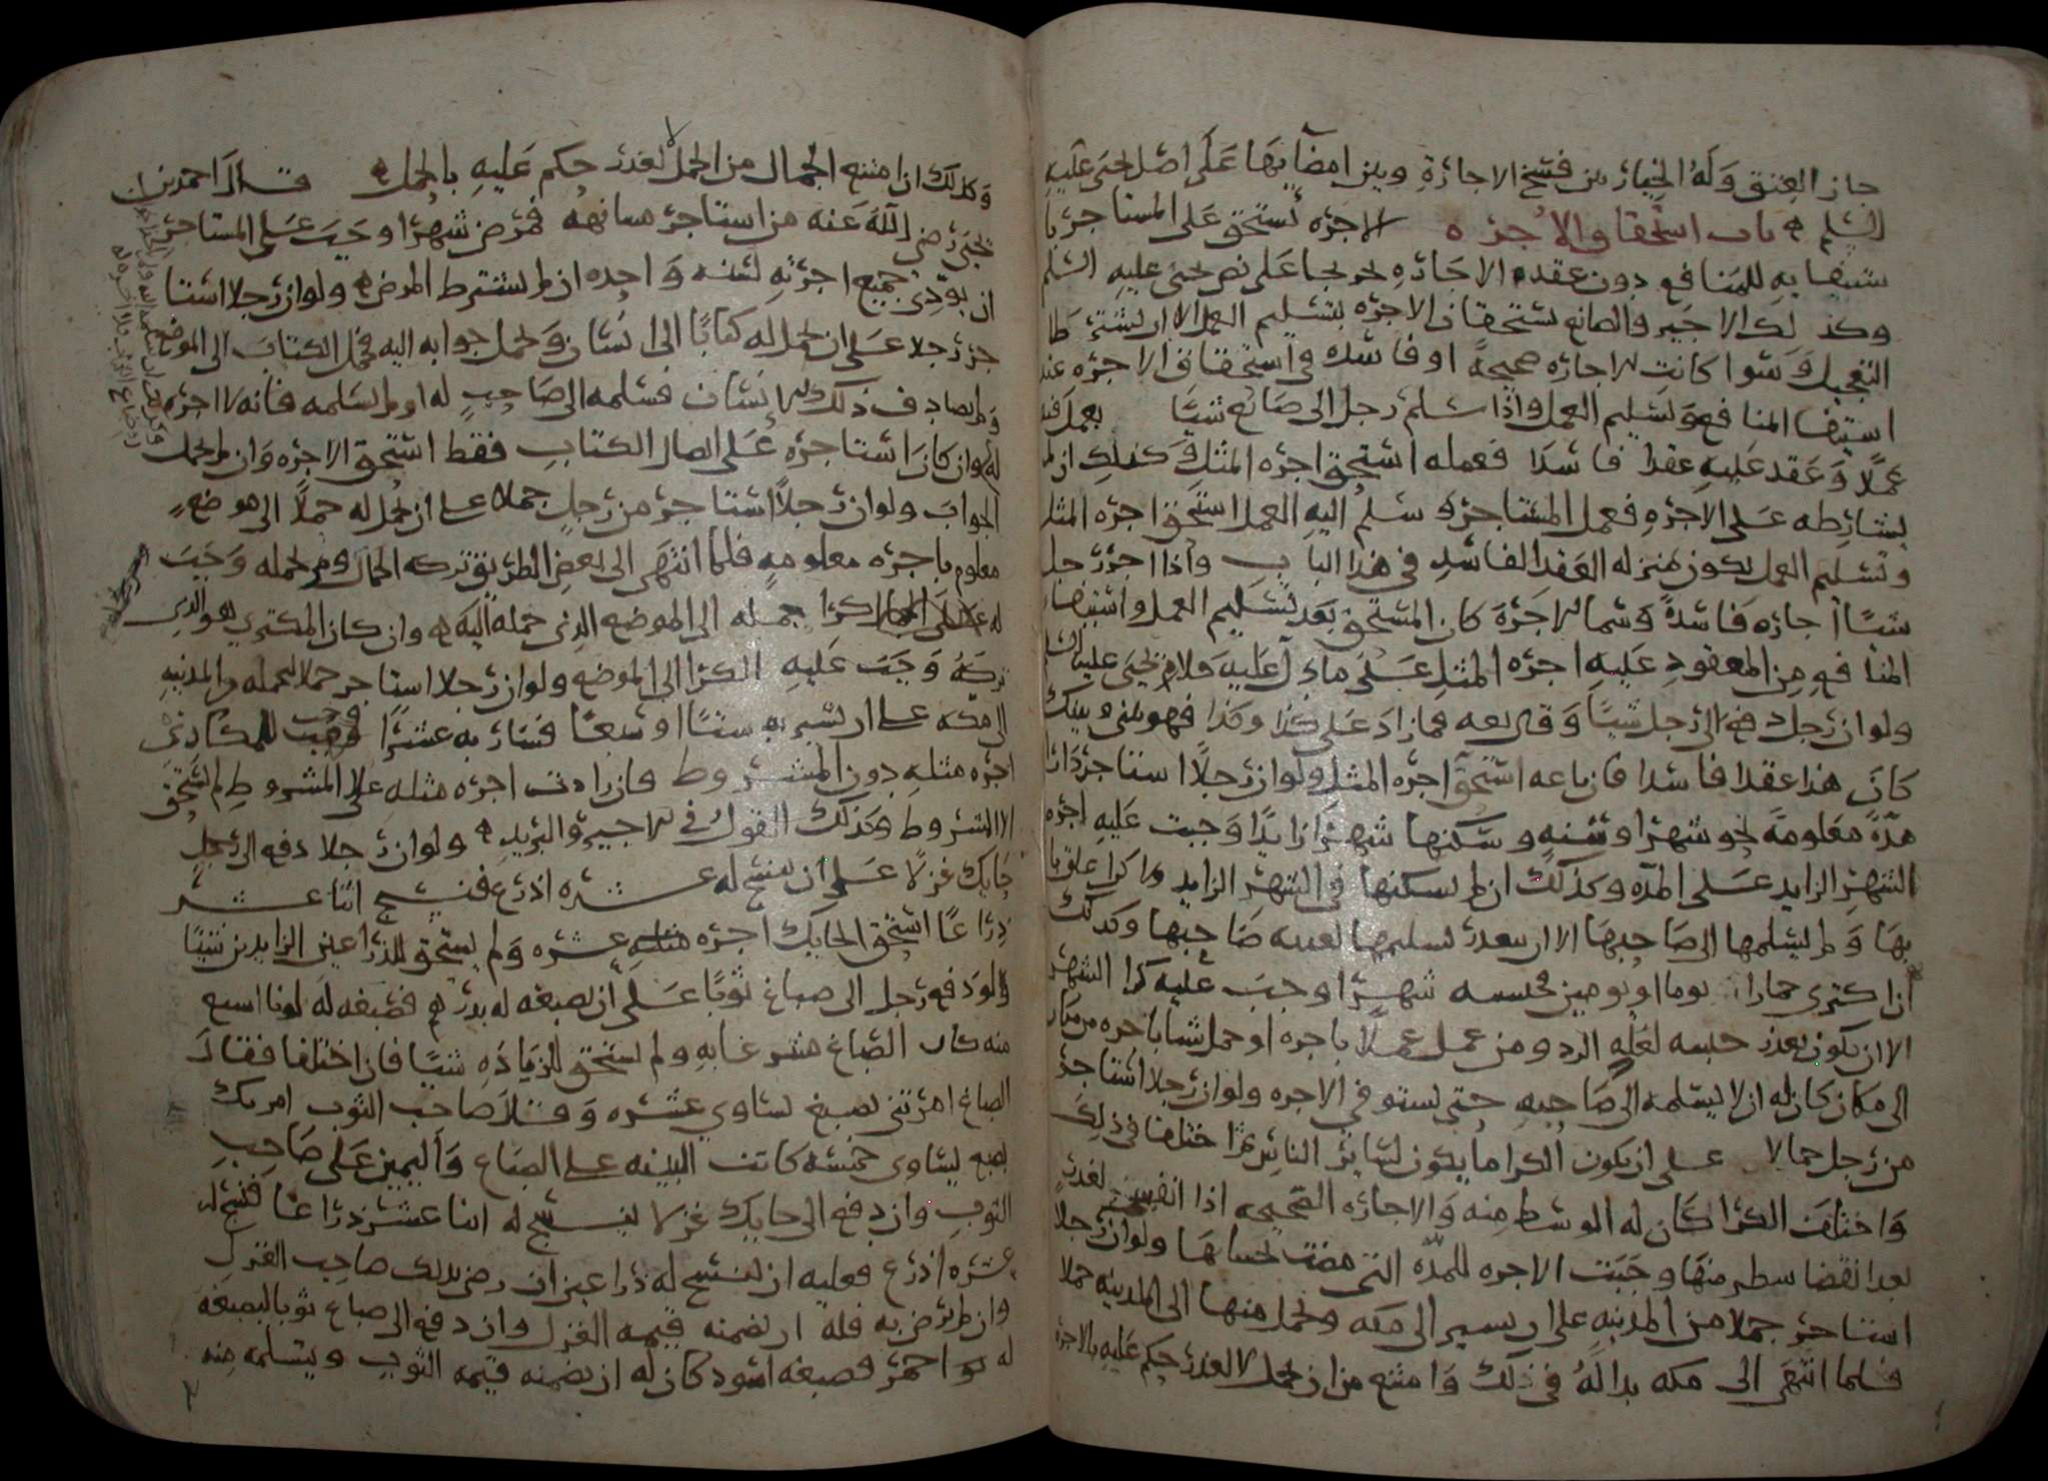 جاز العتق وله الخيار بين فسخ الاجارة وبين امضايها على اصل يحيى عليه
السلم ه باب استحقاق الاجره ه الاجره تستحق على المستاجر با
ستيفايه للمنافع دون عقده الاجاره نحو نجا على نص يحيى عليه السلم
وكذلك الاجير والصانع يستحقان الاجره بتسليم العمل الا ان يشترطا
التعجيل وسوا كانت الاجاره صحيحة او فاسده في استحقاق الاجره عند
استيفا المنافع وتسليم العمل واذا سلم رجل الى صانع شيا يعمل فيه
عملا وعقد عليه عقدا فاسدا فعمله استحق اجره المثل وكذلك ان لم
يشارطه على الاجره فعمل المستاجر وسلم اليه العمل استحق اجره المثل
وتسليم العمل يكون بمنزله العقد الفاسد في هذا الباب واذا اجر رجل
شيا اجاره فاسدة وسما الاجرة كان المستحق بعد تسليم العمل واستيفا
المنافع من المعقود عليه اجره المثل على ما دل عليه كلام يحيى عليه السلم
ولو ان رجلا دفع الى رجل شيا وقال بعه فما زاد على كذا وكذا فهو بيني وبينك
كان هذا عقدا فاسدا فان باعه استحق اجره المثل ولو ان رجلا استاجر دارا
مدة معلومة نحو شهر او سنه وسكنها شهرا زايدا وجبت عليه اجره
الشهر الزايد على المده وكذلك ان لم يسكنها في الشهر الزايد
بها ولم يسلمها الى صاحبها الا ان يتعذر تسليمها لغيبه صاحبها وكذلك
ان اكترى حمارا يوما او يومين فحبسه شهرا وجب عليه كرا الشهر
الا ان يكون لعذر حبسه لعله الرد ومن عمل عملا باجره او حمل شيا باجره من مكان
الى مكان كان له ان لا يسلمه الى صاحبه حتى يستوفي الاجره ولو ان رجلا استاجر
من رجل جمالا على ان يكون الكرا ما يكون لساير الناس ثم اختلفا في ذلك
واختلف الكرا كان له الوسط منه والاجاره الصحيحه اذا انفسخت لعذر
بعد انقضا شطر منها وجبت الاجره للمده التي مضت بحسابها ولو ان رجلا
استاجر جملا من المدينه على ان يسير الى مكه ويحمل منها الى المدينه حملا
فلما انتهى الى مكه بدا له في ذلك وامتنع من ان يحمل لا لعذر حكم عليه بالاجره
وكذلك ان امتنع الجمال من الحمل لا لعذر حكم عليه بالحمل ه قال احمد بن
يحيى رضي الله عنه من استاجر مسانهه فمرض شهرا وجب على المستاجر
ان يودي جميع اجرته لسنه واحده ان لم يشترط المرض ه ولو ان رجلا استا
جر رجلا على ان يحمل له كتابا الى انسان ويحمل جوابه اليه فحمل الكتاب الى الموضع
ولم يصادف ذلك الانسان فسلمه الى صاحب له او لم يسلمه فانه لا اجره
له وان كان استاجره على ايصال الكتاب فقط استحق الاجره وان لم يحمل
الجواب ولو ان رجلا استاجر من رجل جملا على ان يحمل له حملا الى موضع
معلوم باجره معلومه فلما انتهى الى بعض الطريق تركه الجمال ولم يحمله وجب
له كرا حمله الى الموضع الذي حمله اليه ه وان كان المكتري هو الذي
تركه وجب عليه الكرا الى الموضع ولو ان رجلا استاجر جملا يحمله من المدينه
الى مكه على ان يسير به ستا او سبعا فسار به عشرا وجب للمكاري
اجره مثله دون المشروط فان زادت اجره مثله على المشروط لم يستحق
الا المشروط وكذلك القول في الاجير والبريد ه ولو ان رجلا دفع الى رجل
حايك غزلا على ان ينسج له عشره اذرع فنسج اثنا عشر
ذراعا استحق الحايك اجره عشره ولم يستحق للذراعين الزايدين شيا
ولو دفع رجل الى صباغ ثوبا على ان يصبغه له بدرهم فصبغه له لونا اسبع
منه كان الصباغ متبرعا به ولم يستحق للزياده شيا فان اختلفا فقال
الصباغ امرتني بصبغ يساوي عشره وقال صاحب الثوب امرتك
بصبغ يساوي خمسه كانت البينه على الصباغ واليمين على صاحب
الثوب وان دفع الى حايك غزلا لينسج له اثنا عشر ذراعا فنسج له
عشره اذرع فعليه ان ينسج له ذراعين ان رضي بذلك صاحب الغزل
وان لم يرض به فله ان يضمنه قيمه الغزل وان دفع الى صباغ ثوبا ليصبغه
له احمر فصبغه اسود كان له ان يضمنه قيمه الثوب ويتسلمه منه